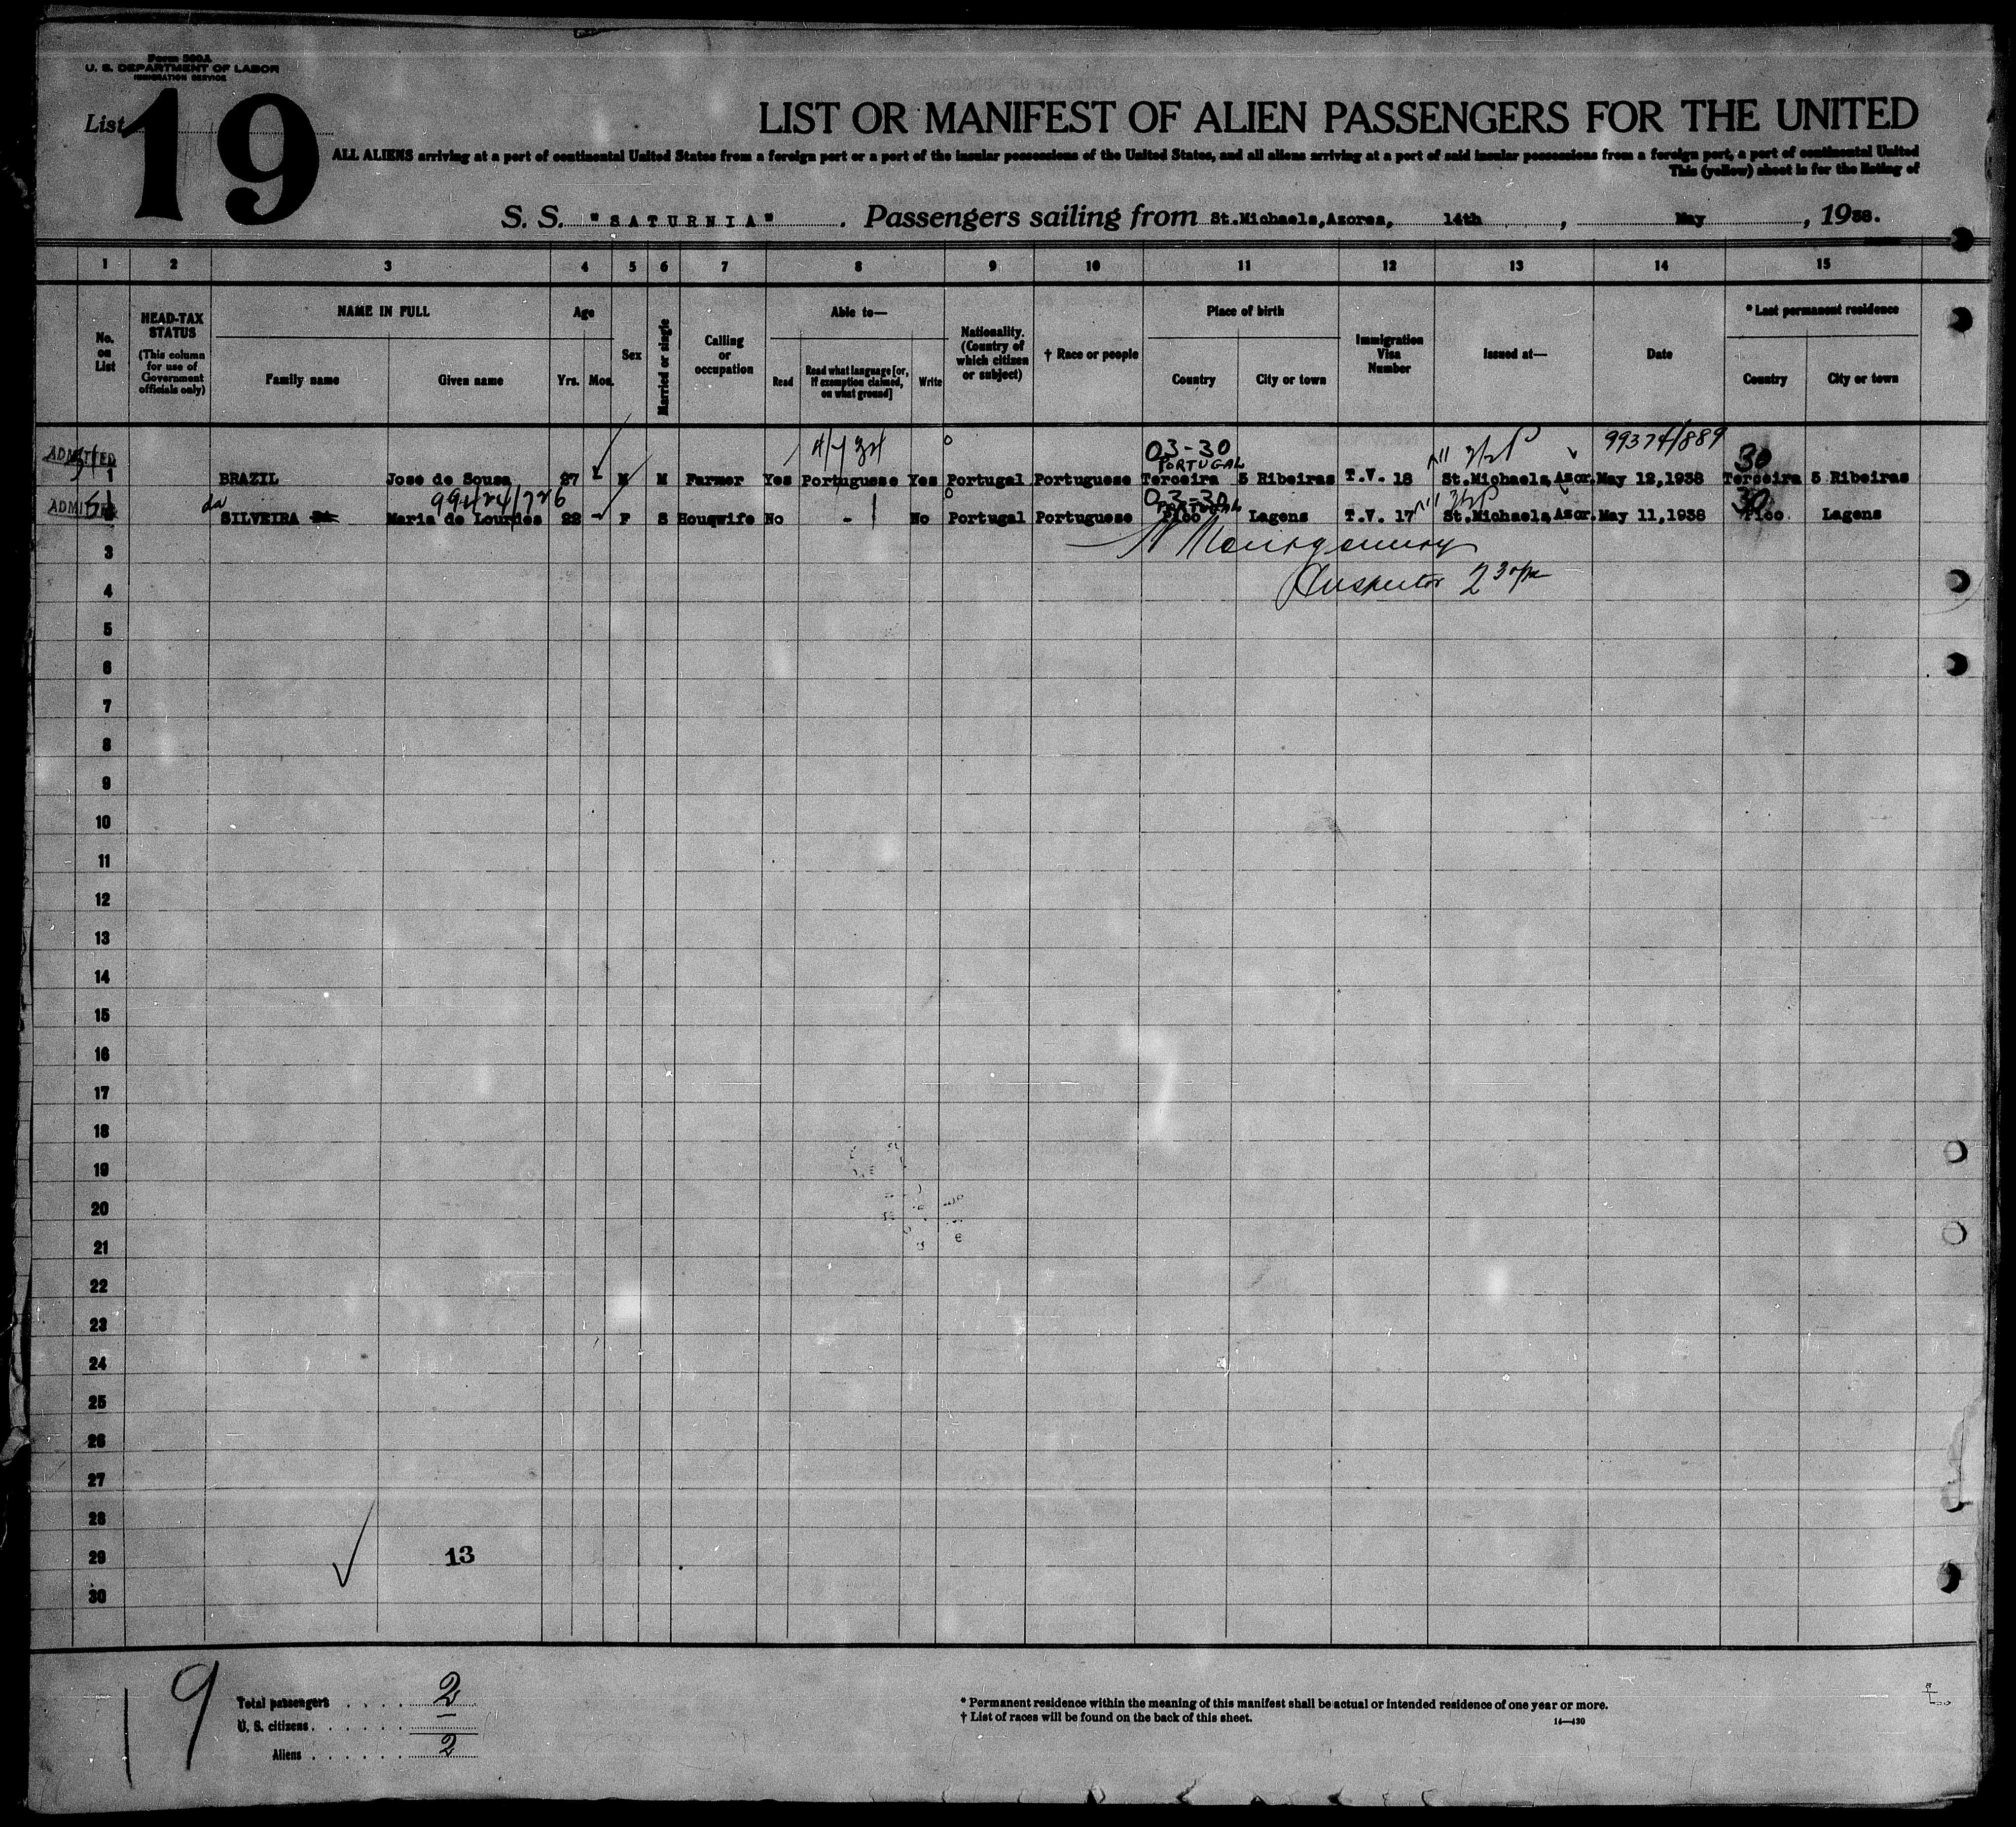 Form 500A
U. S. DEPARTMENT OF LABOR
IMMIGRATION SERVICE
List 19
LIST OR MANIFEST OF ALIEN PASSENGERS FOR THE UNITED
ALL ALIENS arriving at a port of continental United States from a foreign port or a port of the insular possessions of the United States, and all aliens arriving at a port of said insular possessions from a foreign port, a port of continental United
This (yellow) sheet is for the listing of
S. S. "SATURNIA" . Passengers sailing from St.Michaels,Azores, 14th , May , 1938.
1 2 3 4 5 6 7 8 9 10 11 12 13 14 15
No. on List
HEAD-TAX STATUS (This column for use of Government officials only)
NAME IN FULL
Family name Given name
Age
Yrs. Mos.
Sex
Married or single
Calling or occupation
Able to—
Read Read what language [or, if exemption claimed, on what ground] Write
Nationality. (Country of which citizen or subject)
† Race or people
Place of birth
Country City or town
Immigration Visa Number
Issued at—
Date
* Last permanent residence
Country City or town
4/7 34 03-30 99374/889 30
ADMITTED PORTUGAL
1 BRAZIL Jose de Sousa 27 M M Farmer Yes Portuguese Yes Portugal Portuguese Terceira 5 Ribeiras T.V. 18 St.Michaels, Azor. May 12,1938 Terceira 5 Ribeiras
99424/726 03-30 30
ADMITTED da PORTUGAL
SILVEIRA Maria de Lourdes 22 - F S Houswife No - No Portugal Portuguese Pico Lagens T.V. 17 St.Michaels, Azor. May 11,1938 Pico. Lagens
3 Montgomery
4 Inspector 2 30 pm
5
6
7
8
9
10
11
12
13
14
15
16
17
18
19
20
21
22
23
24
25
26
27
28
29 13
30
19
Total passengers . . . . 2
U. S. citizens . . . . . .
Aliens . . . . . . 2
* Permanent residence within the meaning of this manifest shall be actual or intended residence of one year or more.
† List of races will be found on the back of this sheet.
14—430